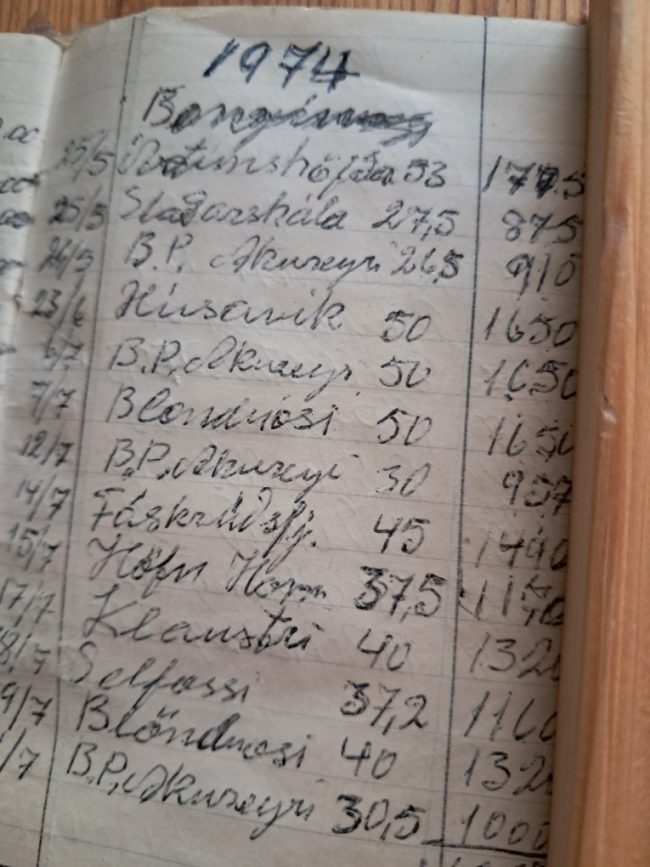 1974
25/5 Ártúnshöfða 53 1775
25/5 Staðarskála 27,5 875
26/5 B.P. Akureyri 26,5 910
23/6 Húsavík 50 1650
6/7 B.P. Akureyri 50 1650
7/7 Blönduósi 50 1650
12/7 B.P. Akureyri 30 957
14/7 Fáskrúðsfj. 45 1490
15/7 Höfn Horn 37,5
17/7 Klaustri 40 1320
18/7 Selfossi 37,2 1160
9/7 Blönduósi 40 1320
/7 B.P. Akureyri 30,5 1000